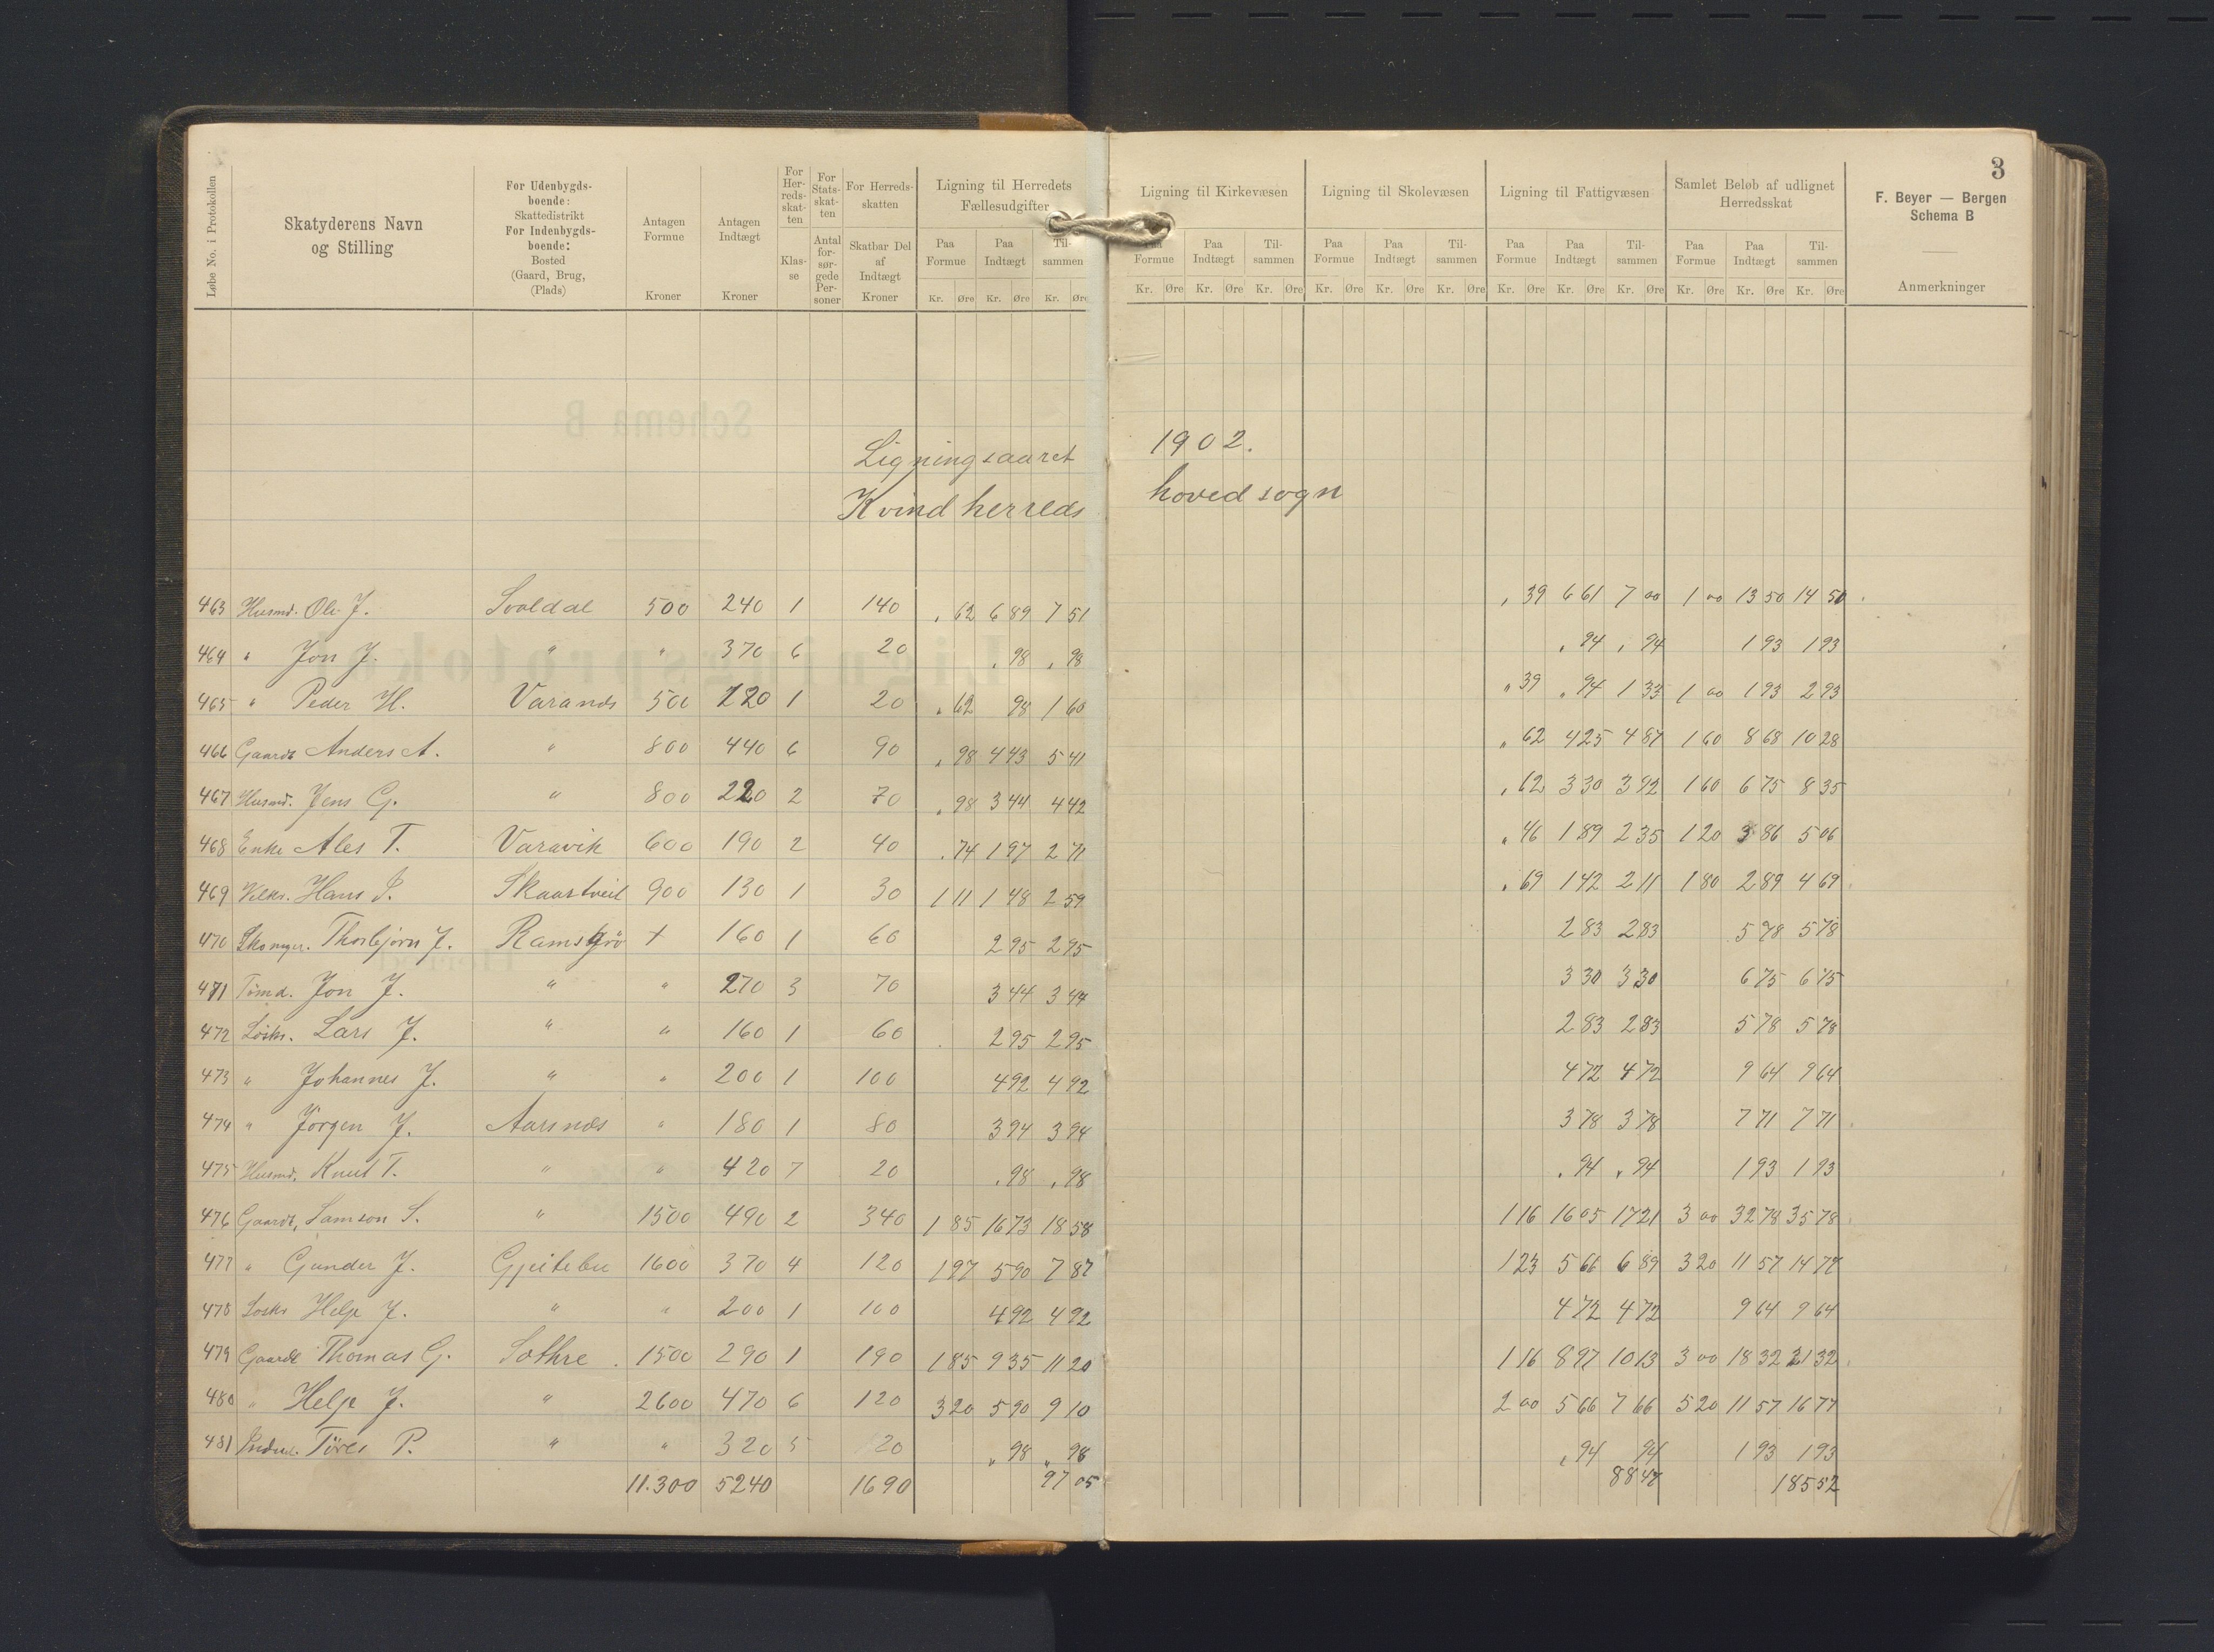 3
Løbe No. i Protokollen
Skatyderens Navn og Stilling
For Udenbygds-boende: Skattedistrikt For Indenbygds-boende: Bosted (Gaard, Brug, (Plads)
Antagen Formue Kroner
Antagen Indtægt Kroner
For Her-reds-skat-ten Klas-se
For Stats-skat-ten Antal for-sør-gede Per-soner
For Herreds-skatten Skatbar Del af Indtægt Kroner
Ligning til Herredets Fællesudgifter
Paa Formue Paa Indtægt Til-sammen
Kr. Øre Kr. Øre Kr. Øre
Ligning til Kirkevæsen
Paa Formue Paa Indtægt Til-sammen
Kr. Øre Kr. Øre Kr. Øre
Ligning til Skolevæsen
Paa Formue Paa Indtægt Til-sammen
Kr. Øre Kr. Øre Kr. Øre
Ligning til Fattigvæsen
Paa Formue Paa Indtægt Til-sammen
Kr. Øre Kr. Øre Kr. Øre
Samlet Beløb af udlignet Herredsskat
Paa Formue Paa Indtægt Til-sammen
Kr. Øre Kr. Øre Kr. Øre
F. Beyer — Bergen
Schema B
Anmerkninger
Ligningsaaret 1902.
Kvindherreds hovedsogn
463 Husmd. Ole J. 500 240 1 140 , 62 6 89 7 51 , 39 6 61 7 00 1 00 13 50 14 50
464 " Jon J. " " 370 6 20 , 98 , 98 , 94 , 94 1 93 1 93
465 " Peder H. Varanes 500 120 1 20 , 62 98 1 60 " 39 " 94 1 33 1 00 1 93 2 93
466 Gaardb Anders A. " 800 440 6 90 , 98 4 43 5 41 " 62 4 25 4 87 1 60 8 68 10 28
467 Husmd. Jens G. " 800 220 2 70 , 98 3 44 4 42 , 62 3 30 3 92 1 60 6 75 8 35
468 Enke Ales T. Varavik 600 190 2 40 , 74 1 97 2 71 " 46 1 89 2 35 1 20 3 86 5 06
469 Hans S. Skaartveit 900 130 1 30 1 11 1 48 2 59 , 69 1 42 2 11 1 80 2 89 4 69
470 Skomgr. Thorbjørn J. + 160 1 60 2 95 2 95 2 83 2 83 5 78 5 78
471 Tømd. Jon J. " " 270 3 70 3 44 3 44 3 30 3 30 6 75 6 75
472 Løsk. Lars J. " " 160 1 60 2 95 2 95 2 83 2 83 5 78 5 78
473 " Johannes J. " " 200 1 100 4 92 4 92 4 72 4 72 9 64 9 64
474 " Jörgen J. Aarsnes " 180 1 80 3 94 3 94 3 78 3 78 7 71 7 71
475 Husmd. Knut T. " " 420 7 20 , 98 , 98 , 94 , 94 1 93 1 93
476 Gaardb. Samson S. " 1500 490 2 340 1 85 16 73 18 58 1 16 16 05 17 21 3 00 32 78 35 78
477 " Gunder J. Gjeitebu 1600 370 4 120 1 97 5 90 7 87 1 23 5 66 6 89 3 20 11 57 14 77
478 Løsk. Helje J. " " 200 1 100 4 92 4 92 4 72 4 72 9 64 9 64
479 Gaardb Thomas G. Sothre 1500 290 1 190 1 85 9 35 11 20 1 16 8 97 10 13 3 00 18 32 21 32
480 " Helje J. " 2600 470 6 120 3 20 5 90 9 10 2 00 5 66 7 66 5 20 11 57 16 77
481 Töres P. " " 320 5 20 " 98 " 98 , 94 94 1 93 1 93
11.300 5240 1690 97 05 88 47 185 52